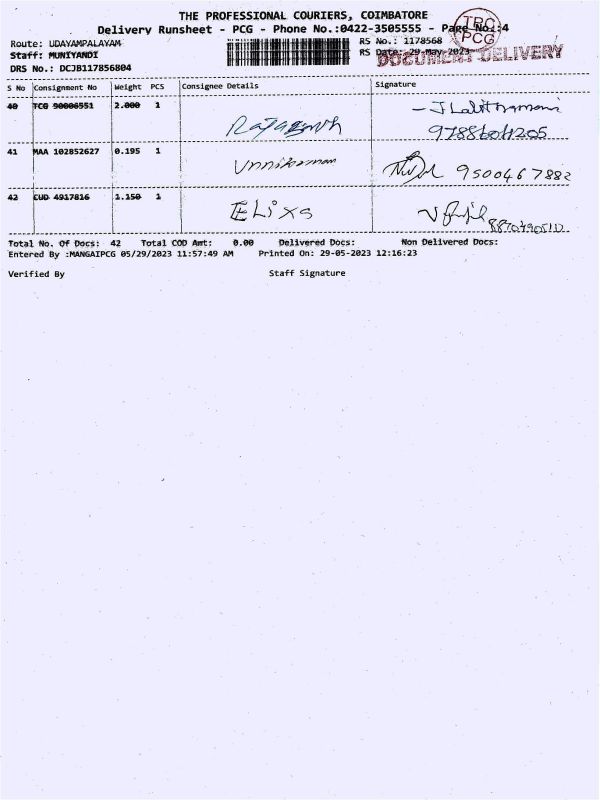 THE PROFESSIONAL COURIERS, COIMBATORE
Delivery Runsheet - PCG - Phone No.:0422-3505555 - Page No:4
TRC
PCG
Route: UDAYAMPALAYAM
RS No.: 1178568
Staff: MUNIYANDI
RS Date: 29-May-2023
DOCUMENT DELIVERY
DRS No.: DCJB117856804
S No Consignment No Weight PCS Consignee Details Signature
40 TCG 90006551 2.000 1
9788604205
41 MAA 102852627 0.195 1 Unnikrishnan 9500467882
42 CUD 4917816 1.150 1 ELixs
Total No. Of Docs: 42 Total COD Amt: 0.00 Delivered Docs: Non Delivered Docs:
Entered By :MANGAIPCG 05/29/2023 11:57:49 AM Printed On: 29-05-2023 12:16:23
Verified By Staff Signature